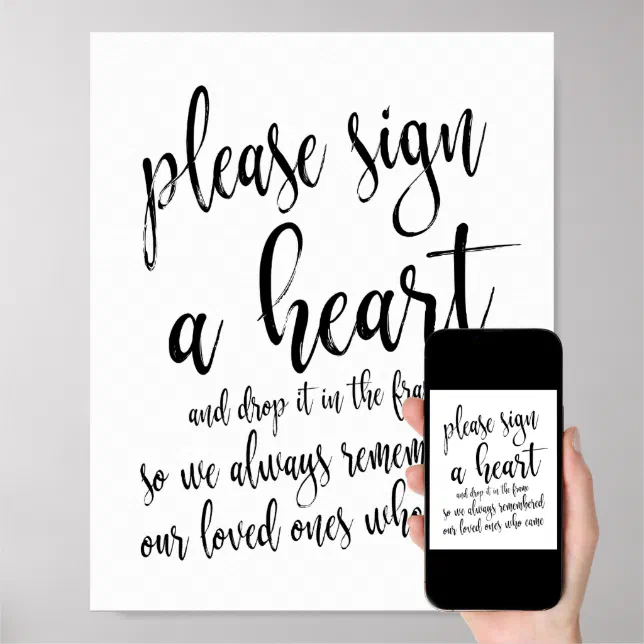 please sign
a heart
and drop it in the fra
so we always remem
our loved ones who
please sign
a heart
and drop it in the frame
so we always remembered
our loved ones who came